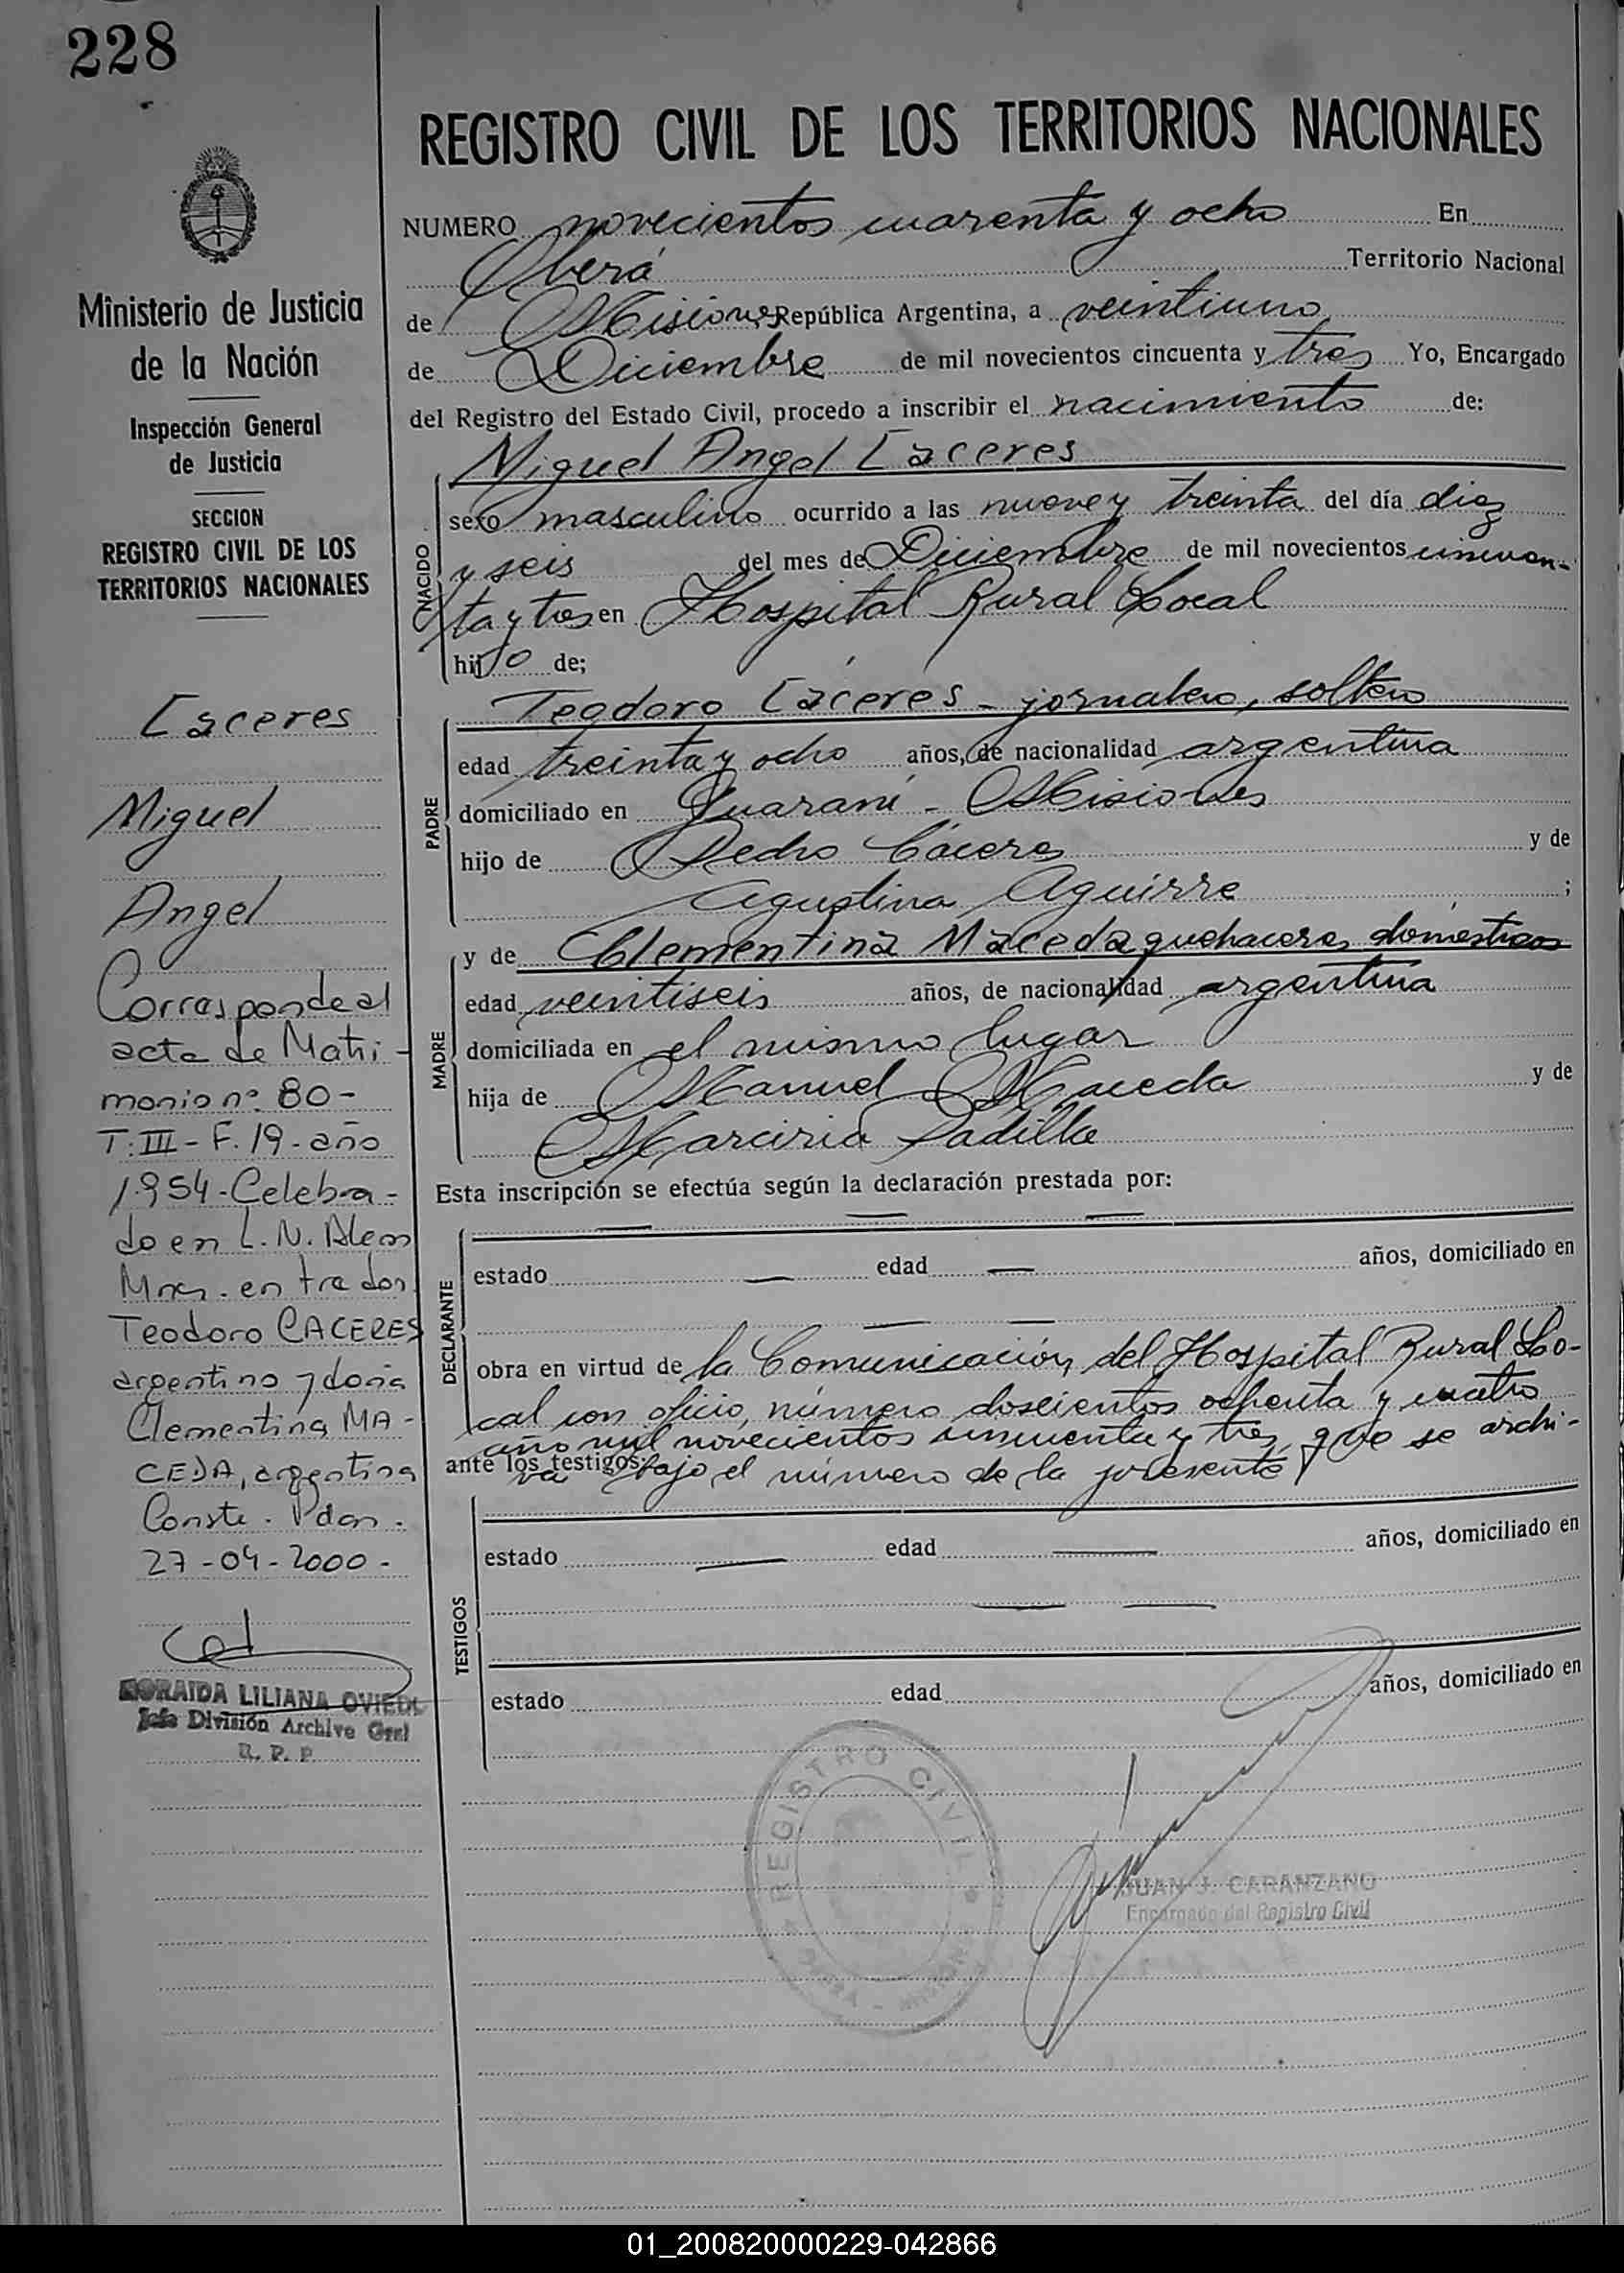 228
Ministerio de Justicia
de la Nación
Inspección General
de Justicia
SECCION
REGISTRO CIVIL DE LOS
TERRITORIOS NACIONALES
Caceres
Miguel
Angel
Corresponde al
acta de Matri-
monio nº 80-
T. III - F. 19 - año
1954 - Celebra-
do en L. N. Alem
Mnes. entre don
Teodoro CACERES
argentino y doña
Clementina MA-
CEDA, argentina
Conste. Pdas.
27-04-2000-
ZORAIDA LILIANA OVIEDO
Jefe División Archivo Gral
R. P. P.
REGISTRO CIVIL DE LOS TERRITORIOS NACIONALES
NUMERO novecientos cuarenta y ocho En
Oberá Territorio Nacional
de Misiones República Argentina, a veintiuno
de Diciembre de mil novecientos cincuenta y tres Yo, Encargado
del Registro del Estado Civil, procedo a inscribir el nacimiento de:
Miguel Angel Caceres
NACIDO
sexo masculino ocurrido a las nueve y treinta del día diez
y seis del mes de Diciembre de mil novecientos cincuen-
ta y tres en Hospital Rural Local
hijo de;
PADRE
Teodoro Cáceres - jornalero, soltero
edad treinta y ocho años, de nacionalidad argentina
domiciliado en Guaraní - Misiones
hijo de Pedro Cáceres y de
Agustina Aguirre ;
MADRE
y de Clementina Maceda quehaceres domésticos
edad veintiseis años, de nacionalidad argentina
domiciliada en el mismo lugar
hija de Manuel Maceda y de
Marciria Padilla
Esta inscripción se efectúa según la declaración prestada por:
DECLARANTE
estado — edad — años, domiciliado en
obra en virtud de la Comunicación del Hospital Rural Lo-
cal con oficio, número doscientos ochenta y cuatro
año mil novecientos cincuenta y tres que se archi-
ante los testigos: va bajo el número de la presente
TESTIGOS
estado — edad — años, domiciliado en
estado edad años, domiciliado en
REGISTRO CIVIL
OBERA - MISIONES
JUAN J. CARANZANO
Encargado del Registro Civil
01_200820000229-042866